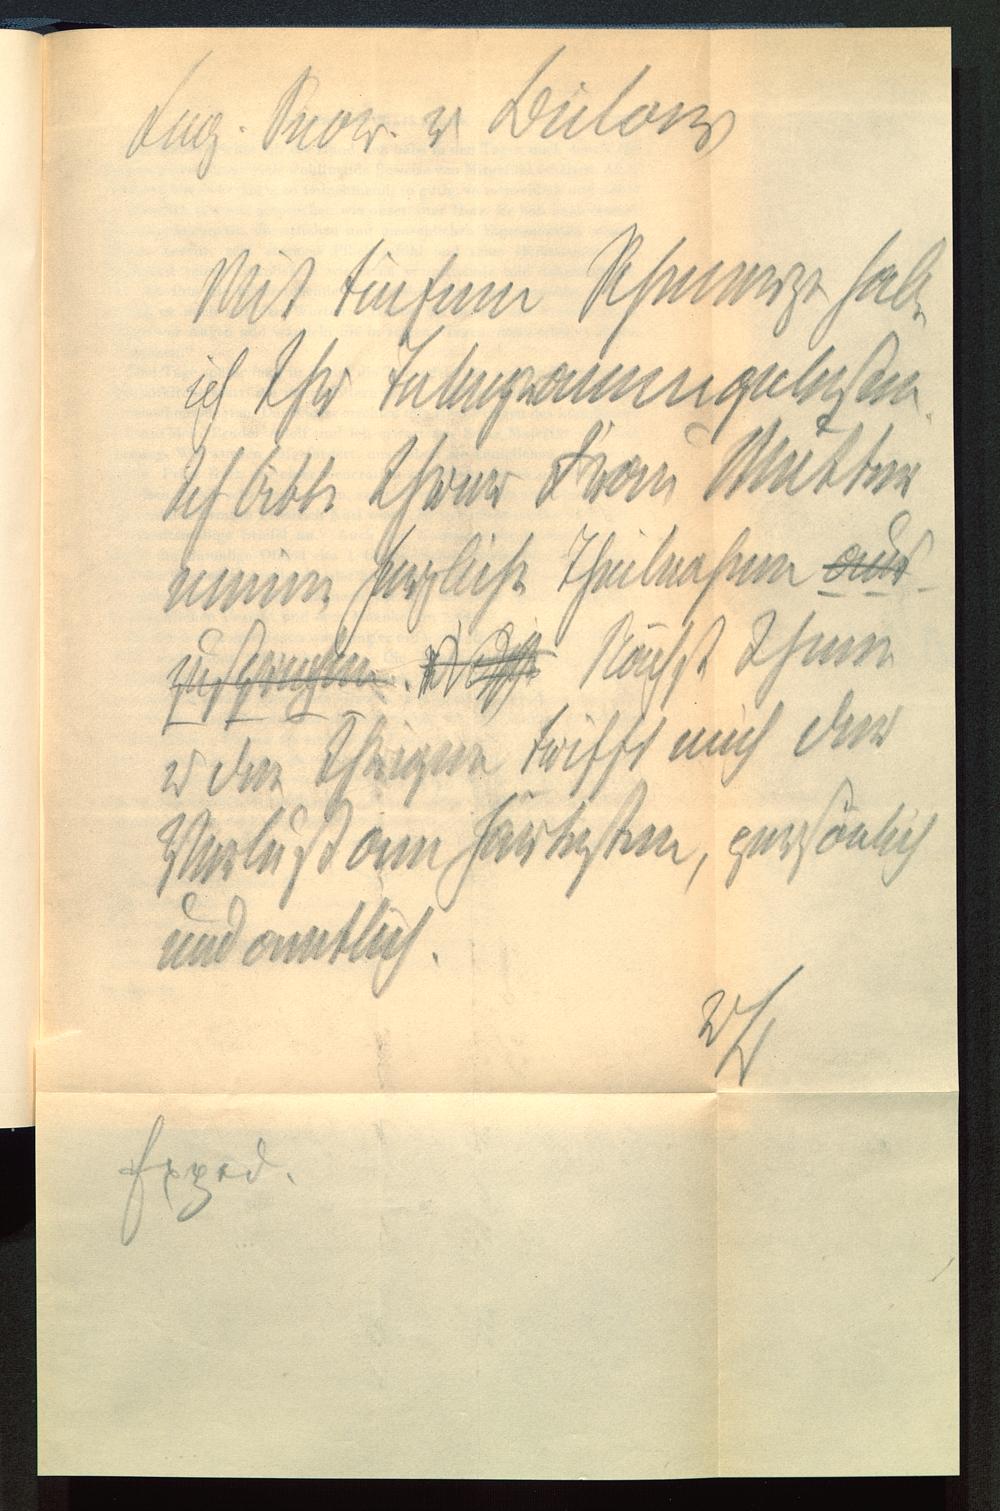 v Bülow
Mit tiefem Schmerze habe
ich Ihr Telegramm gelesen.
Ich bitte Ihrer Frau Mutter
meine herzliche Theilnahme aus-
zusprechen. Nächst Ihnen
u den Ihrigen trifft mich der
Verlust am härtesten, persönlich
und amtlich.
vB
Exped.